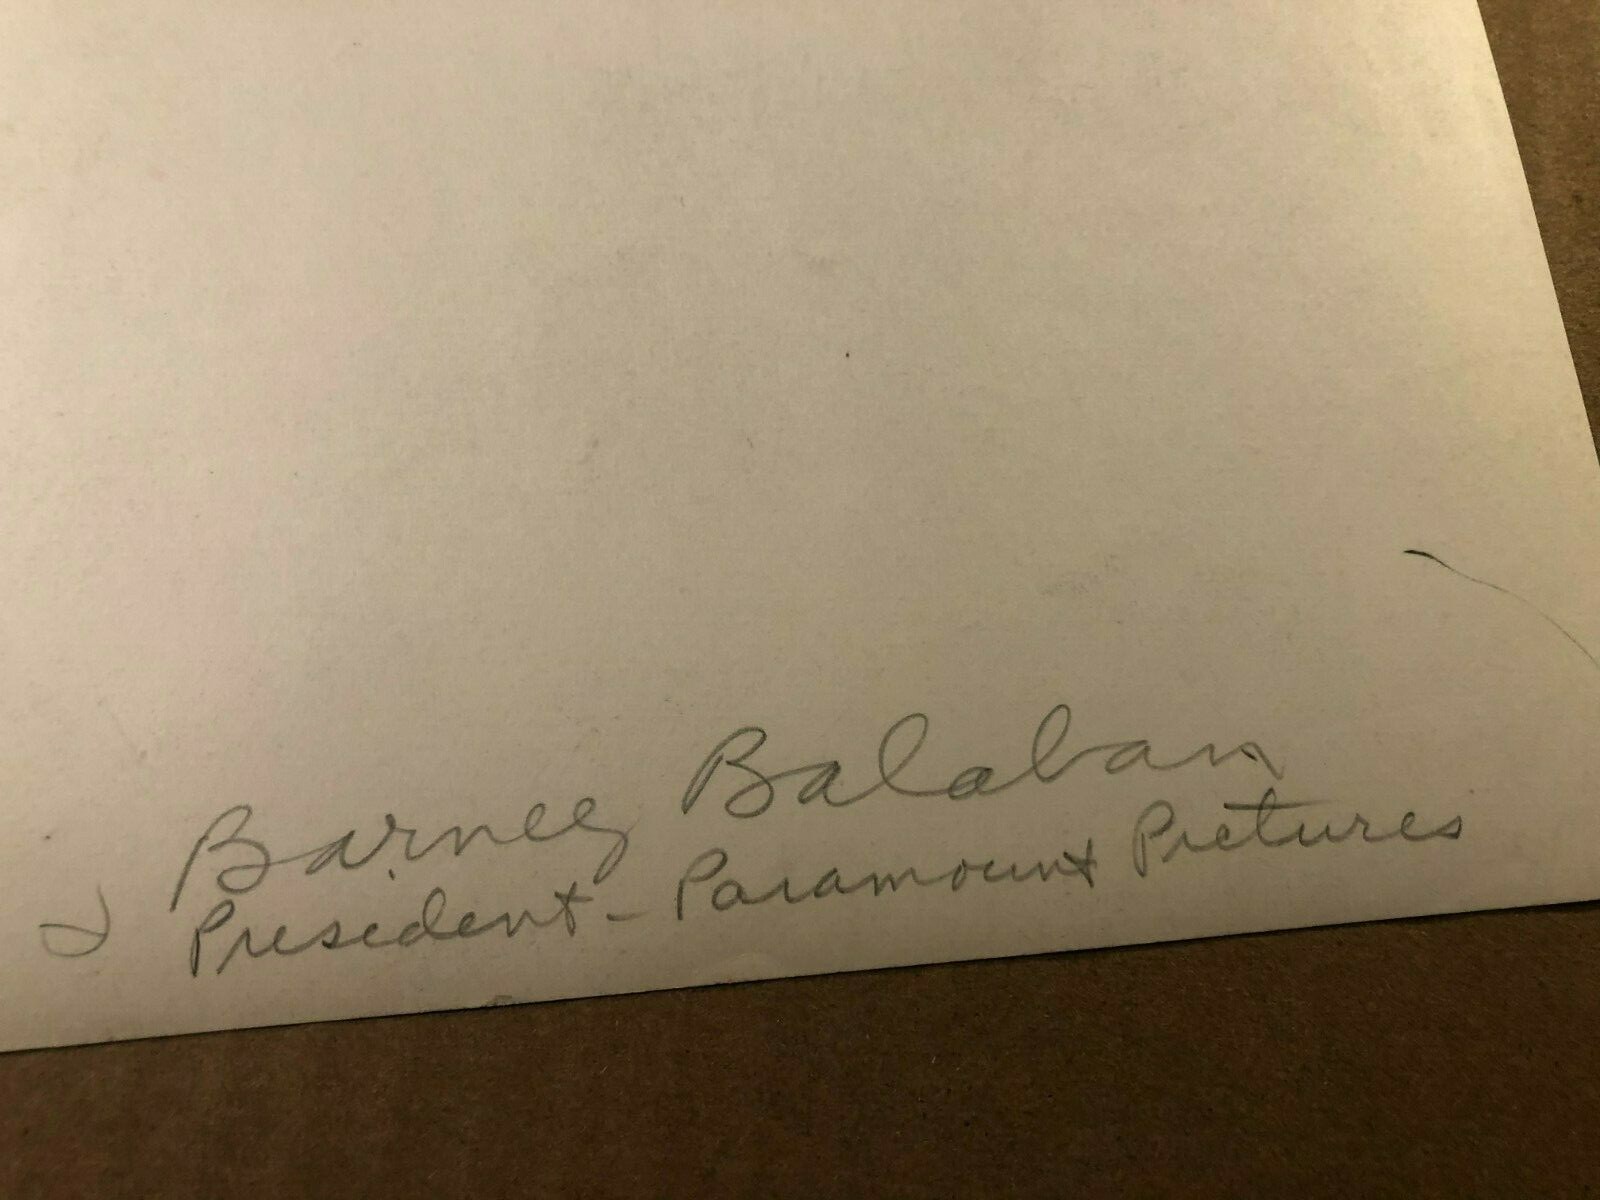 Barney Balaban
President - Paramount Pictures